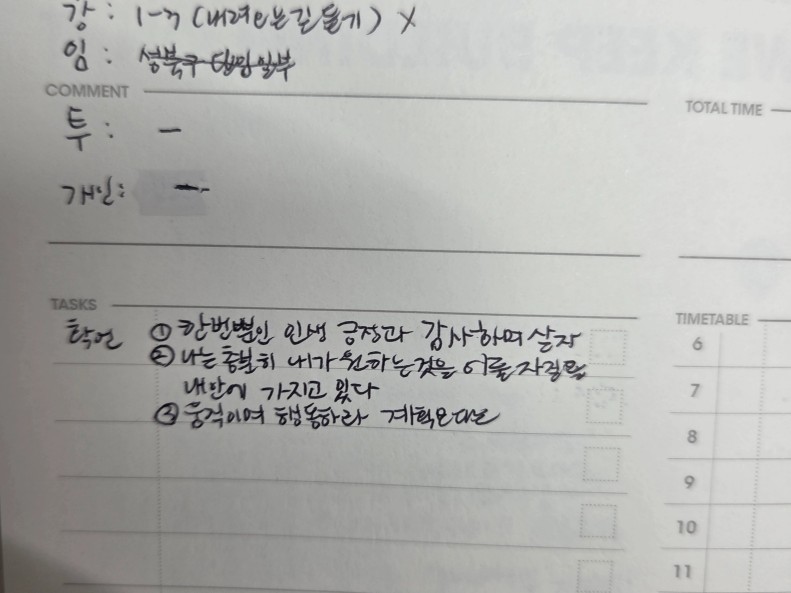 강 : 1-7 (내려오는길 듣기) X
임 : 성북구 답장일부
COMMENT
TOTAL TIME
투 : -
개인: -
TASKS
TIMETABLE
확언 ① 한번뿐인 인생 긍정과 감사하며 살자
6
② 나는 충분히 내가 원하는것을 이룰 자질을
내안에 가지고 있다
7
③ 움직이며 행동하라 계획한대로
8
9
10
11